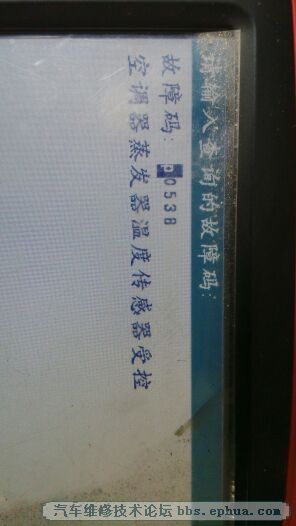 请输入查询的故障码:
故障码: P0538
空调器蒸发器温度传感器受控
汽车维修技术论坛 bbs.ephua.com